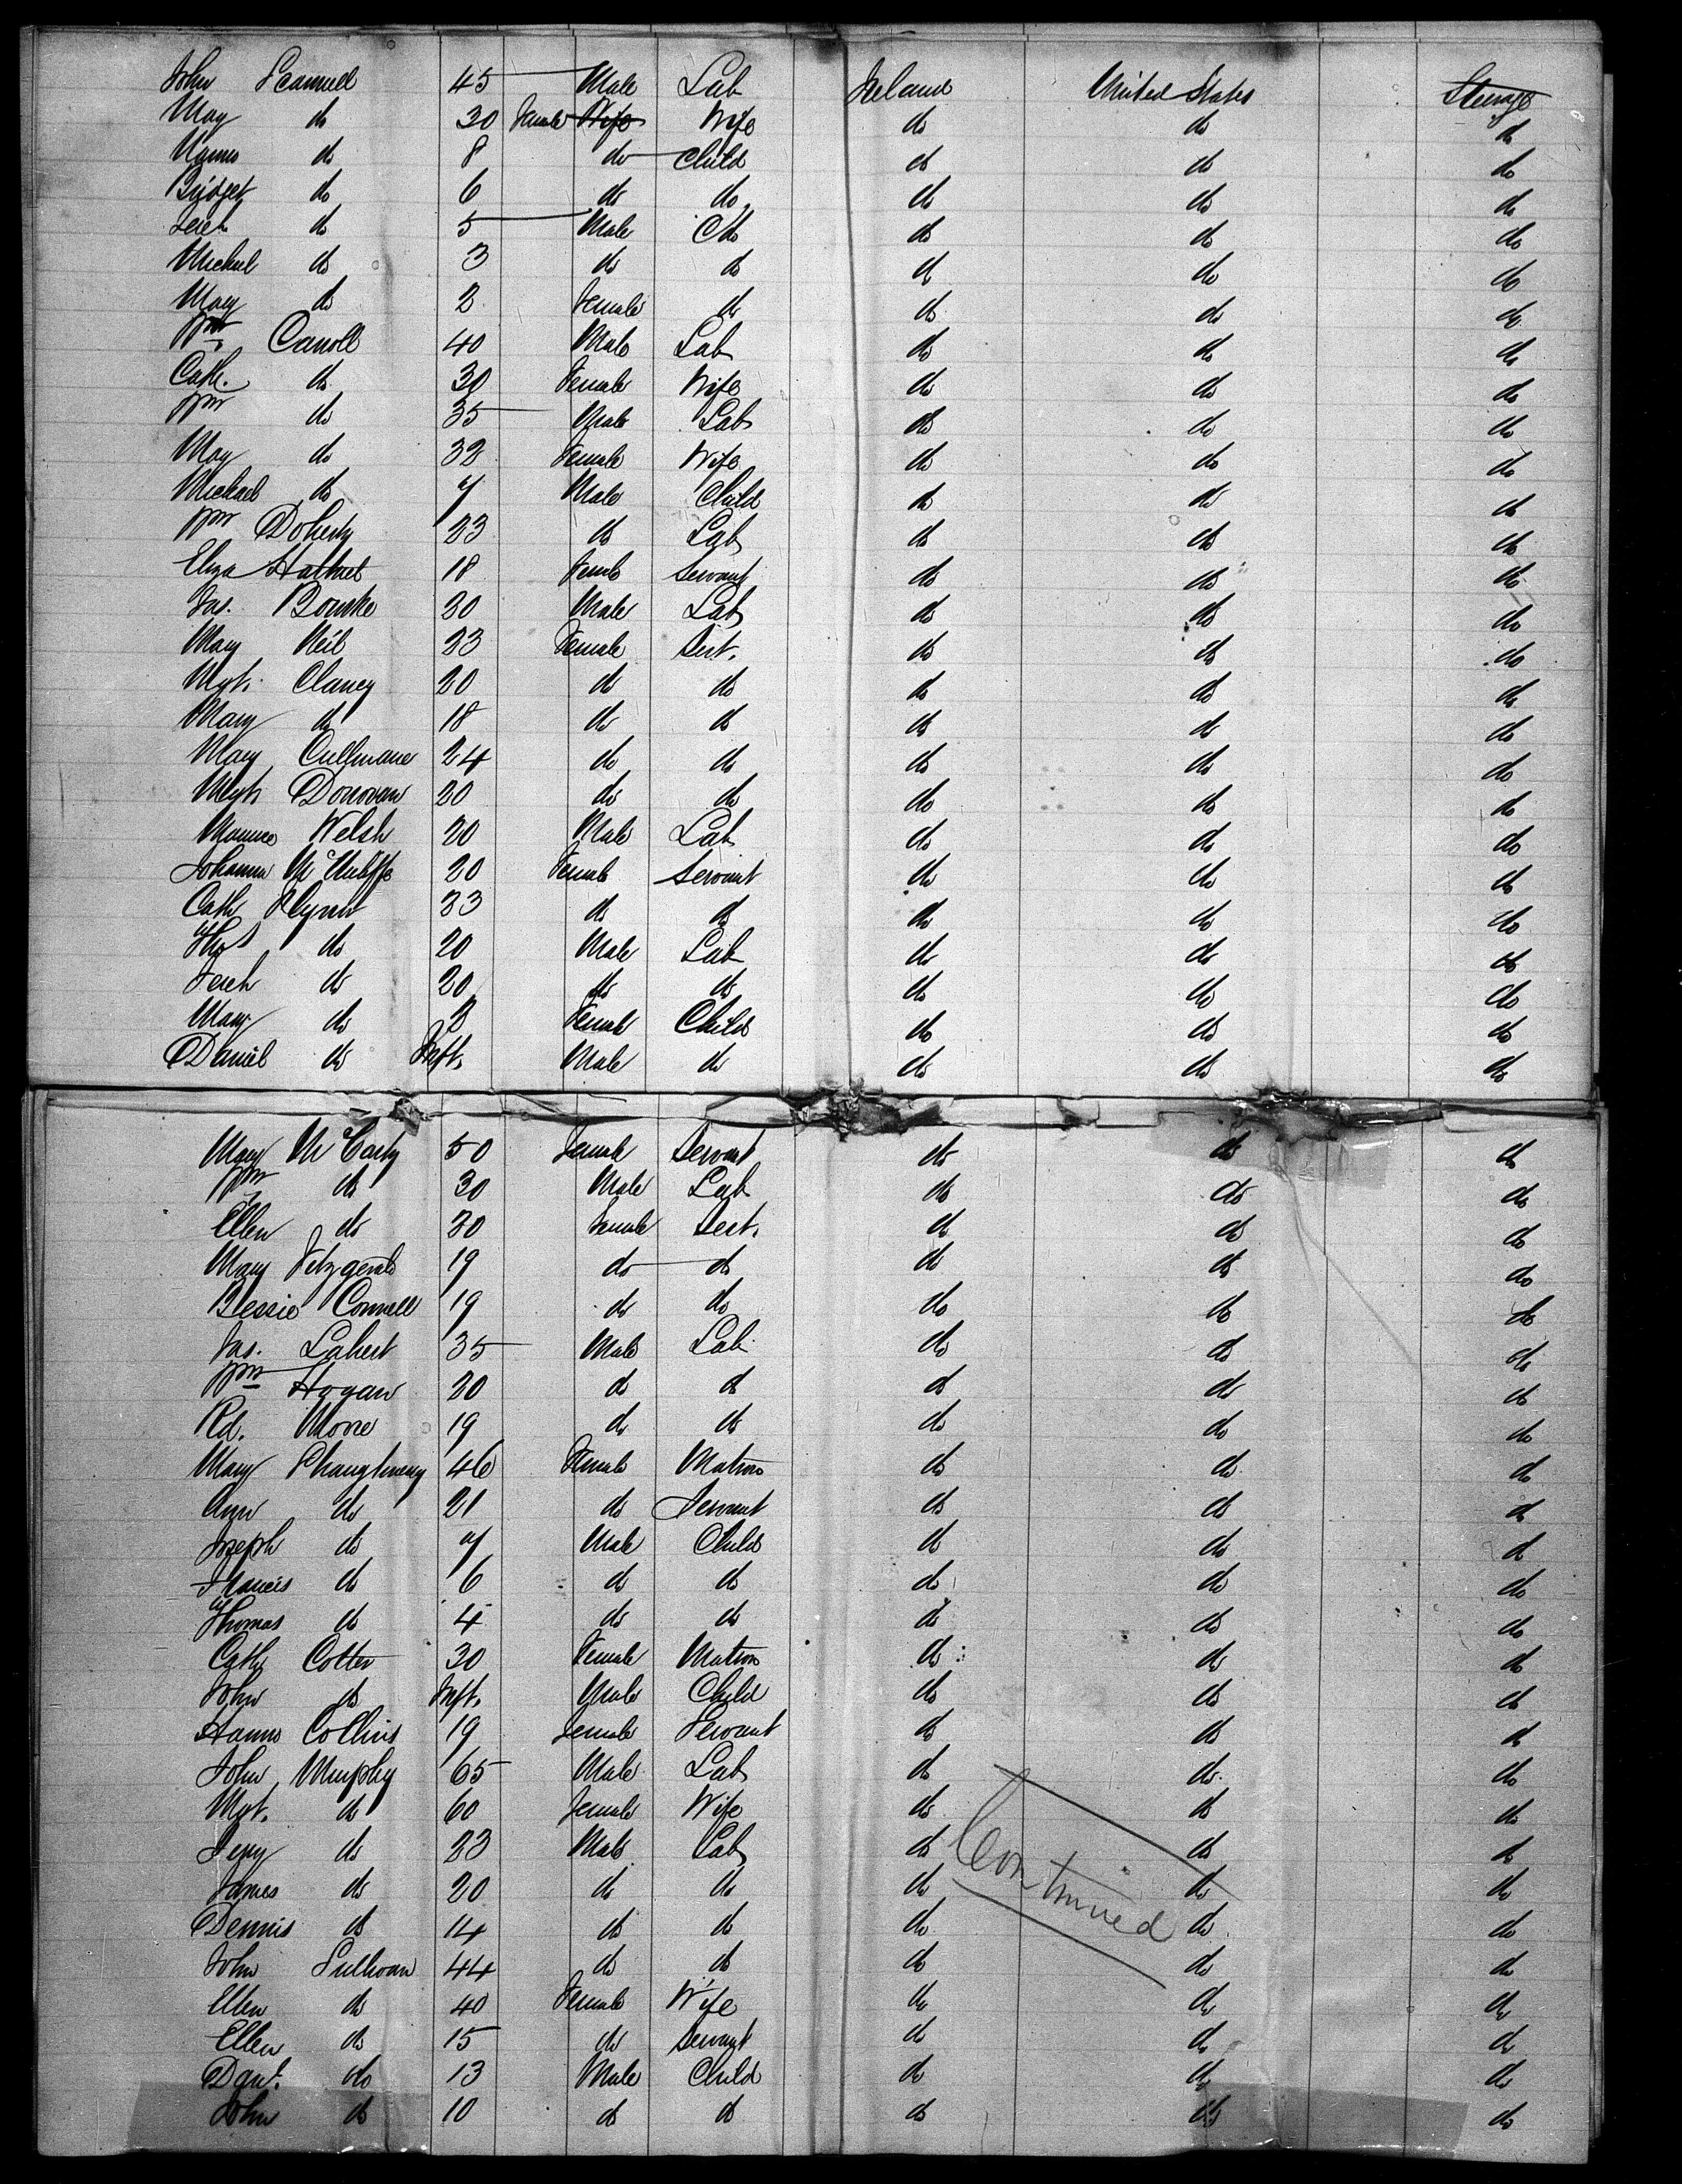 John Scannell 45 Male Lab Ireland United States Steerage
May do 30 Female Wife Wife do do do
do 8 do Child do do do
Bridget do 6 do do do do do
Jereh do 5 Male Ch do do do
Michael do 3 do do do do do
Mary do 2 Female do do do do
Wm Carroll 40 Male Lab do do do
Cath. do 30 Female Wife do do do
Wm do 35 Male Lab do do do
May do 32 Female Wife do do do
Michael do 7 Male Child do do do
Wm Doherty 23 do Lab do do do
Eliza 18 Femle Servant do do do
Jas. Bourke 30 Male Lab do do do
Mary Neil 23 Female Sert. do do do
Mgt. Clancy 20 do do do do do
Mary do 18 do do do do do
Mary Cullinane 24 do do do do do
Mgt. Donovan 20 do do do do do
Maurice Welsh 20 Male Lab do do do
Johanna McAuliffe 20 Female Servant do do do
Cath Flynn 33 do do do do do
Thos do 20 Male Lab do do do
Jereh do 20 do do do do do
Mary do 2 Female Child do do do
Daniel do Inft. Male do do do do
Mary McCarty 50 Female Servant do do do
Wm do 30 Male Lab do do do
Ellen do 30 Female Sert. do do do
Mary Fitzgerald 19 do do do do do
Bessie Connell 19 do do do do do
Jas. Lahert 35 Male Lab do do do
Wm Hogan 20 do do do do do
Rd. Morre 19 do do do do do
Mary Shaughnessy 46 Female Matron do do do
Ann do 21 do Servant do do do
Joseph do 7 Male Child do do do
Francis do 6 do do do do do
Thomas do 4 do do do do do
Cath Cotter 30 Female Matron do do do
John do Inft. Male Child do do do
Hanna Collins 19 Female Servant do do do
John Murphy 65 Male Lab do do do
Mgt. do 60 Female Wife do do do
Jerry do 23 Male Lab do do do
James do 20 do do do do do
Dennis do 14 do do do do do
Continued
John Sullivan 44 do do do do do
Ellen do 40 Female Wife do do do
Ellen do 15 do Servant do do do
Danl. do 13 Male Child do do do
John do 10 do do do do do